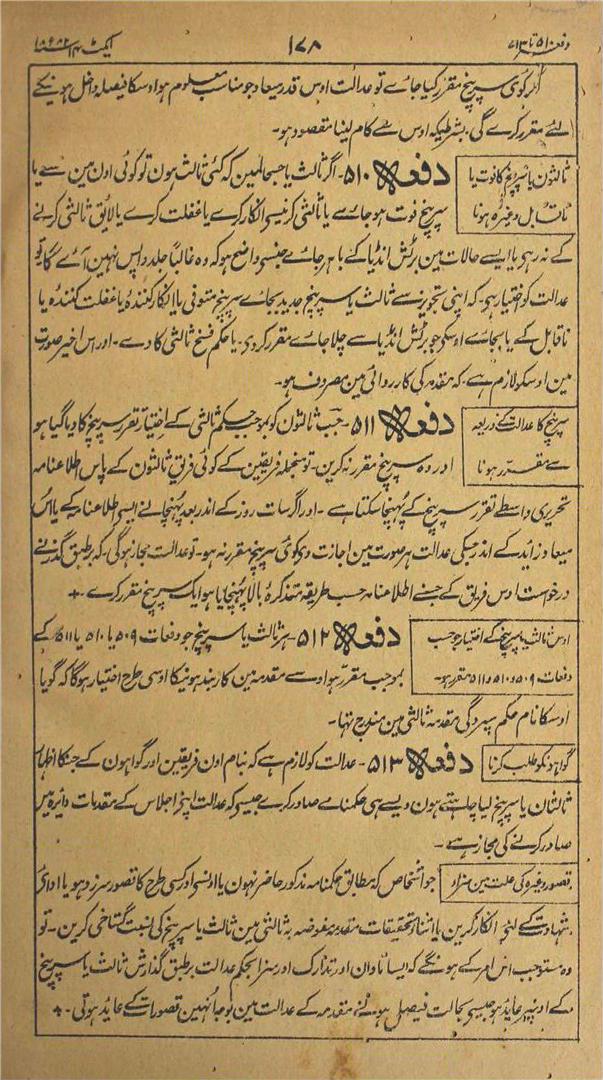 دفعہ ۵۱۰ تا ۵۱۳
۱۷۸
ایکٹ ۱۴ سنہ ۱۸۸۲ء
اگر کوئی سرپنچ مقرر کیا جاے تو عدالت اوس قدر میعاد جو مناسب معلوم ہو اوسکا فیصلہ داخل ہونیکے
لئے مقرر کرے گی بشرطیکہ اوس سے کام لینا مقصود ہو۔
ثالثون یا سرپنچ کا فوت یا
ناقابل وغیرہ ہونا
دفعہ ۵۱۰۔ اگر ثالث یا جس حالمین کہ کئی ثالث ہون تو کوئی اون مین سے یا
سرپنچ فوت ہو جاے یا ثالثی کرنیسے انکار کرے یا غفلت کرے یا لایق ثالثی کرنے
کے نہ رہے یا ایسے حالات مین برٹش انڈیا کے باہر جاے جنسے واضح ہو کہ وہ غالباً جلد واپس نہین آے گا تو
عدالت کو اختیار ہے کہ اپنی تجویز سے ثالث یا سرپنچ جدید بجاے سرپنچ متوفی یا انکار کنندہ یا غفلت کنندہ یا
ناقابل کے یا بجاے اوسکی جو برٹش انڈیا سے چلا جاے مقرر کردے۔ یا حکم فسخ ثالثی کا دے۔ اور اس اخیر صورت
مین اوسکو لازم ہے کہ مقدمہ کی کارروائی مین مصروف ہو۔
سرپنچ کا عدالت کے ذریعہ
سے مقرر ہونا
دفعہ ۵۱۱۔ جب ثالثون کو بموجب حکم ثالثی کے اختیار تقرر سرپنچ کا دیا گیا ہو
اور وہ سرپنچ مقرر نہ کرین۔ تو منجملہ فریقین کے کوئی فریق ثالثون کے پاس اطلاعنامہ
تحریری واسطے تقرر سرپنچ کے پہنچا سکتا ہے۔ اور اگر سات روز کے اندر بعد پہنچانے ایسی اطلاعنامہ کے یا اس
میعاد زائد کے اندر جسکی عدالت ہر صورت مین اجازت دی کوئی سرپنچ مقرر نہ ہو۔ تو عدالت مجاز ہوگی۔ کہ بر طبق گذرنے
درخواست اوس فریق کے جسنے اطلاعنامہ حسب طریقہ متذکرہ بالا پہنچایا ہو ایک سرپنچ مقرر کرے۔
اوس ثالث یا سرپنچ کے اختیار جو حسب
دفعات ۵۰۹ و ۵۱۰ و ۵۱۱ مقرر ہو۔
دفعہ ۵۱۲۔ ہر ثالث یا سرپنچ جو دفعات ۵۰۹ یا ۵۱۰ یا ۵۱۱ کے
بموجب مقرر ہو اوسے مقدمہ مین کاربند ہونیکا اوسی طرح اختیار ہوگا کہ گویا
اوسکا نام حکم سپردگی مقدمہ ثالثی مین مندرج تہا۔
گواہونکو طلب کرنا
دفعہ ۵۱۳۔ عدالت کو لازم ہے کہ بنام اون فریقین اور گواہون کے جنکا اظہار
ثالثان یا سرپنچ لیا چاہتے ہون ویسے ہی حکمنامے صادر کرے جیسے کہ عدالت اپنے اجلاس کے مقدمات دائرہ مین
صادر کرنے کی مجاز ہے۔
قصور وغیرہ کی علت مین سزا
جو اشخاص کہ مطابق حکمنامہ مذکور حاضر نہون یا اونسے اور کسی طرح کا قصور سرزد ہو یا اداے
شہادت کے لئے انکار کرین یا اثناء تحقیقات مقدمہ مفوضہ بہ ثالثی مین ثالث یا سرپنچ کی نسبت گستاخی کرین۔ تو
وہ مستوجب اس امر کے ہونگے کہ ایسا تاوان اور تدارک اور سزا بحکم عدالت بر طبق گذارش ثالث یا سرپنچ
کے اونپر عاید ہو جیسے بحالت فیصل ہونے مقدمہ کے عدالت مین بوجہ اونہین قصورات کے عاید ہوتی۔